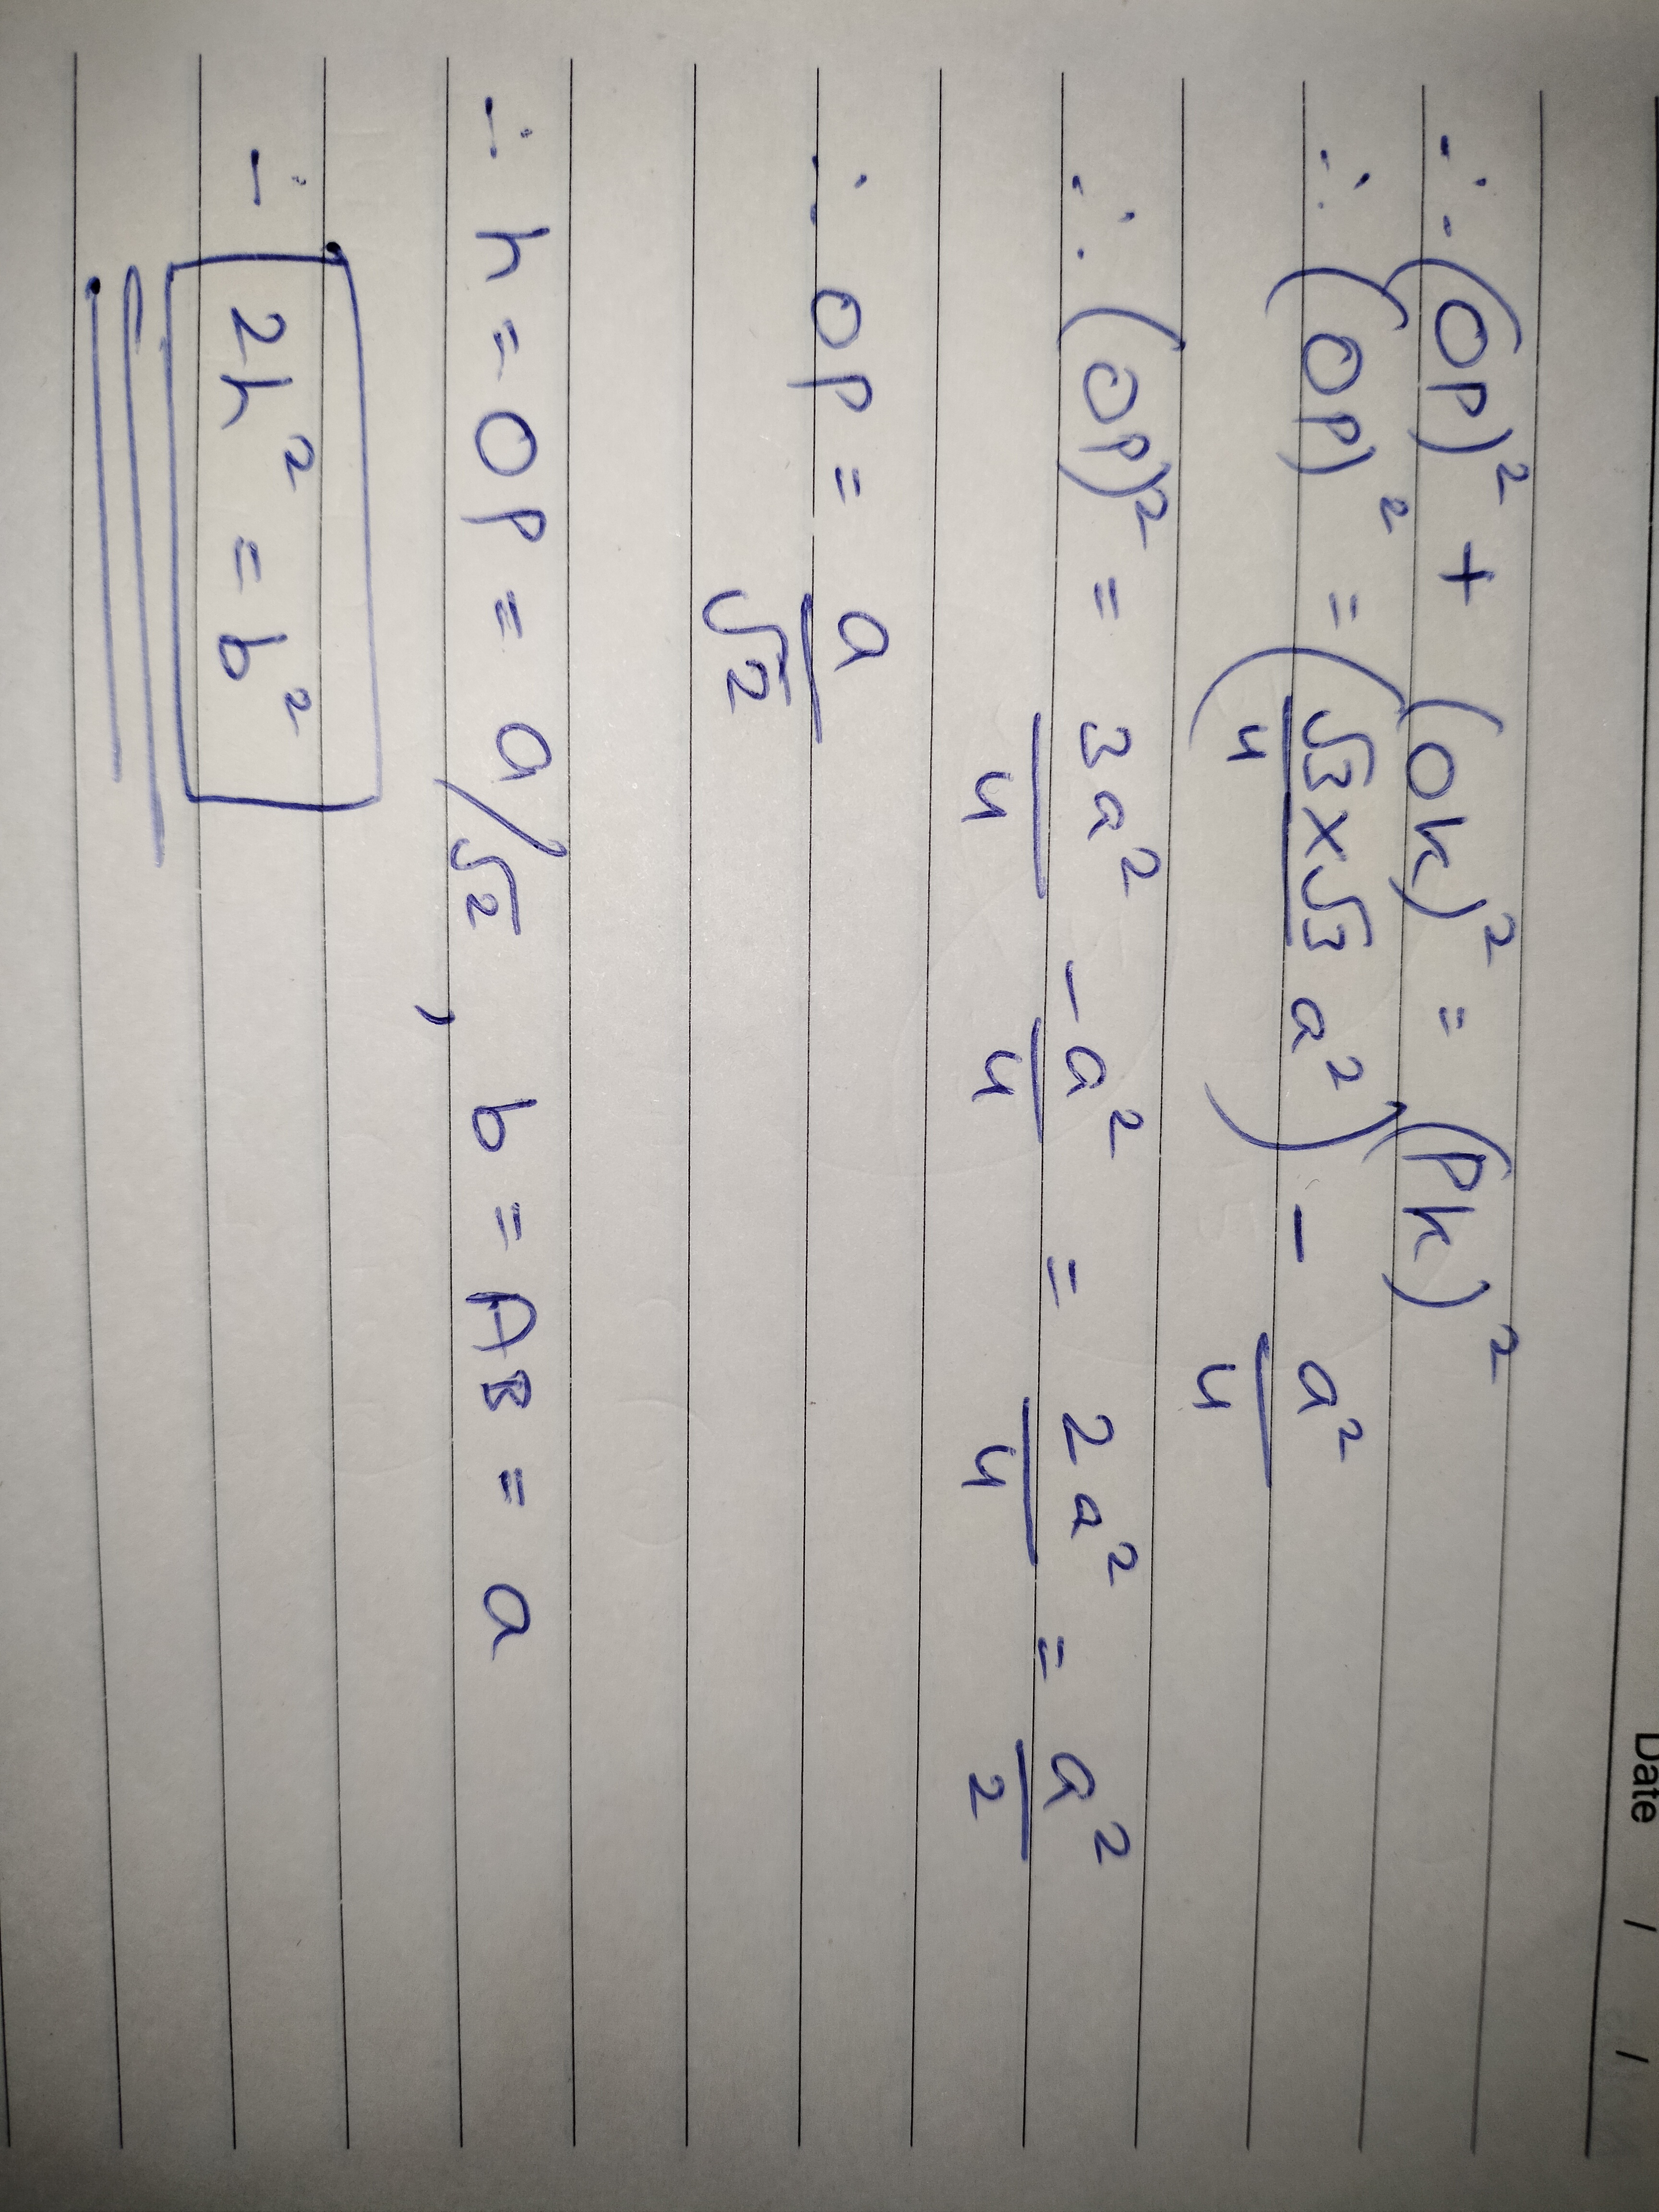 Date / /
∴ (OP)² + (OK)² = (PK)²
∴ (OP)² = (√3×√3/4 a²) - a²/4
∴ (OP)² = 3a²/4 - a²/4 = 2a²/4 = a²/2
∴ OP = a/√2
∴ h = OP = a/√2 , b = AB = a
∴ 2h² = b²